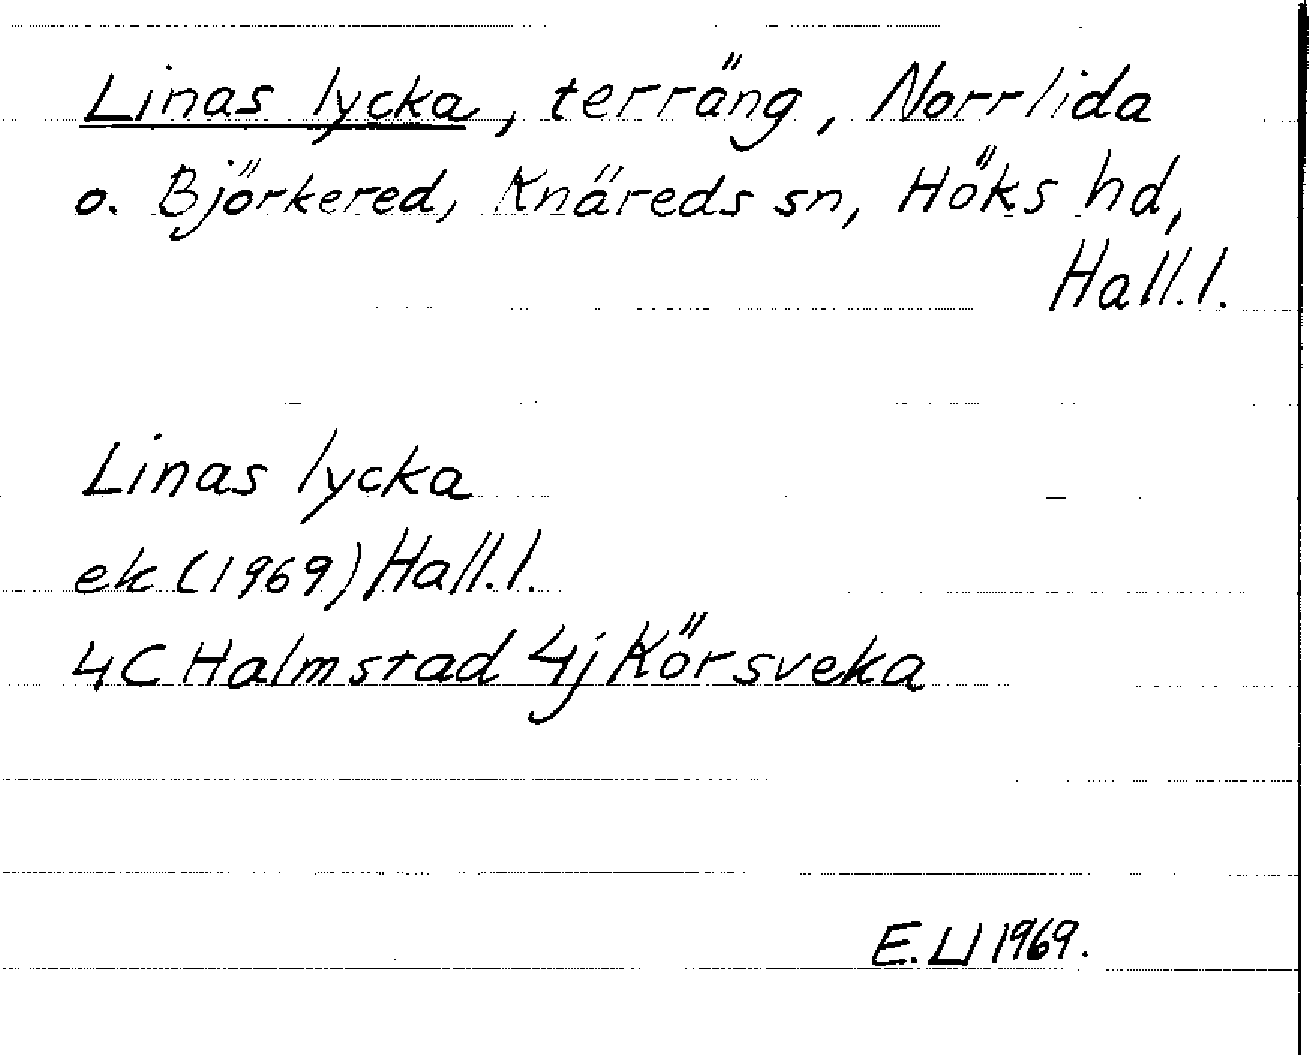 Linas lycka, terräng, Norrlida
o. Björkered, Knäreds sn, Höks hd,
Hall.l.
Linas lycka
ek (1969) Hall.l.
4C Halmstad 4j Körsveka
E. LJ 1969.